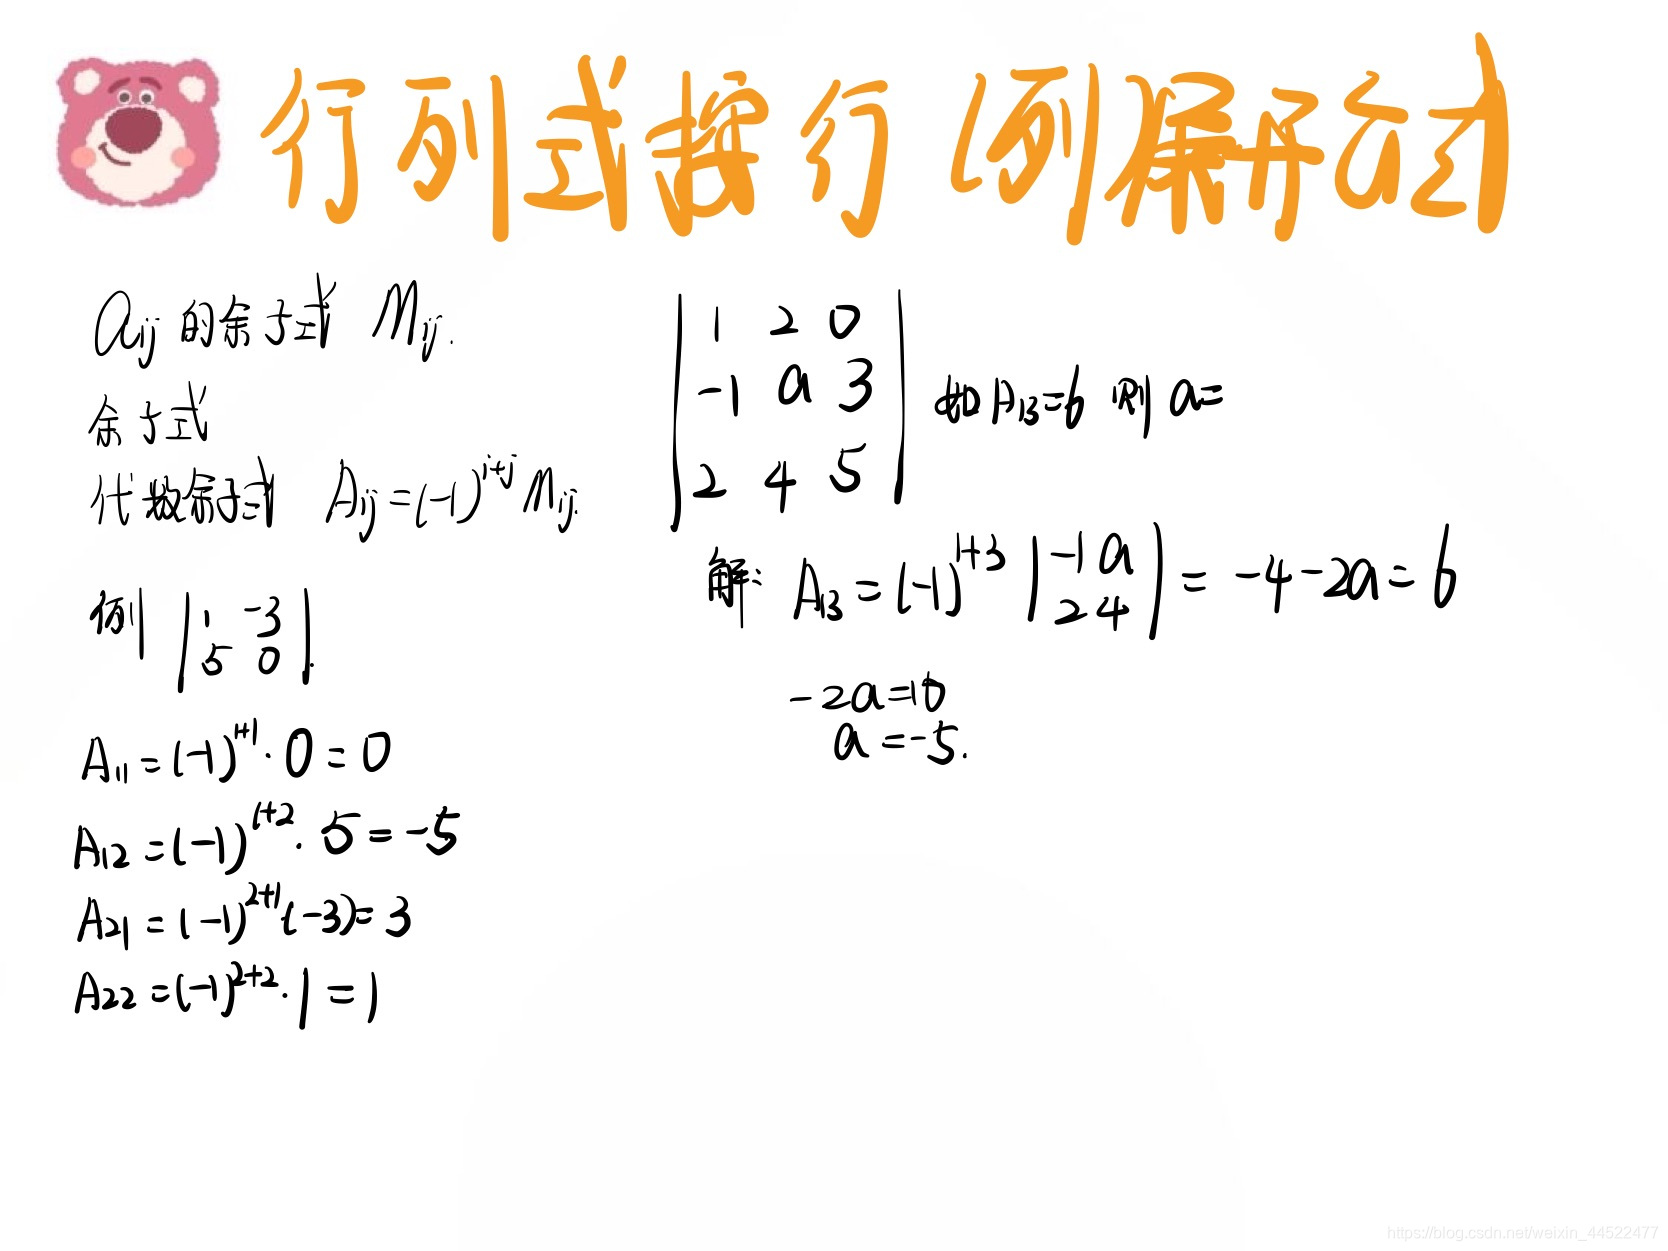 行列式按行(列)展开公式
aij 的余子式 Mij.
余子式
代数余子式 Aij=(-1)^{i+j} Mij.
例 | 1 -3 |
| 5 0 |.
A11=(-1)^{1+1}·0=0
A12=(-1)^{1+2}·5=-5
A21=(-1)^{2+1}(-3)=3
A22=(-1)^{2+2}·1=1
| 1 2 0 |
| -1 a 3 | 如A13=6 则 a=
| 2 4 5 |
解: A13=(-1)^{1+3} | -1 a | = -4-2a=6
| 2 4 |
-2a=10
a=-5.
https://blog.csdn.net/weixin_44522477